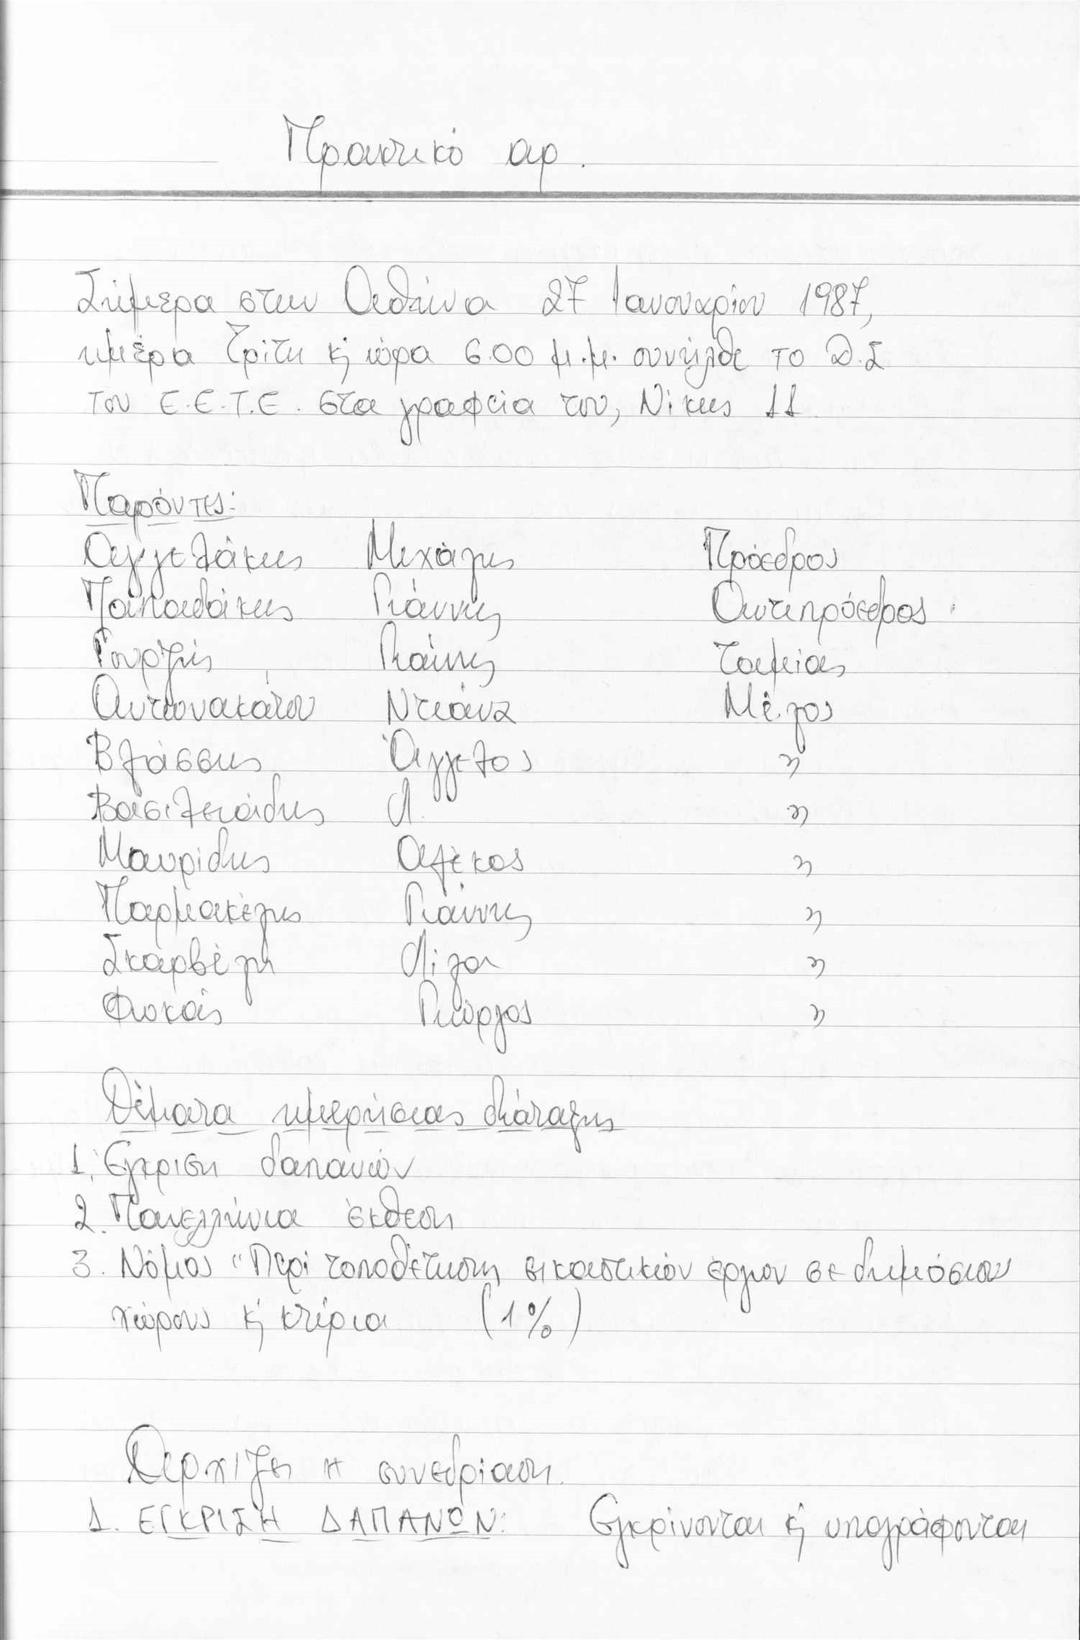 Πρακτικό αρ.
Σήμερα στην Αθήνα 27 Ιανουαρίου 1987,
ημέρα Τρίτη κ́ ώρα 6.00 μ.μ. συνήλθε το Δ.Σ
του Ε.Ε.Τ.Ε. στα γραφεία του, Νίκης 11
Παρόντες:
Αγγελάκης Μιχάλης Πρόεδρος
Παπαδάκης Γιάννης Αντιπρόεδρος
Γουρζής Γιάννης Ταμίας
Αντωνακάτου Ντιάνα Μέλος
Βλάσσης Άγγελος "
Βασιλειάδης Λ. "
Μαυρίδης Αλέκος "
Παρμακέλης Γιάννης "
Σκαρβέλη Λίζα "
Φωκάς Γιώργος "
Θέματα ημερήσιας διάταξης
1. Έγκριση δαπανών
2. Πανελλήνια έκθεση
3. Νόμος "Περί τοποθέτησης εικαστικών έργων σε δημόσιους
χώρους κ́ κτίρια (1%)
Αρχίζει η συνεδρίαση.
1. ΕΓΚΡΙΣΗ ΔΑΠΑΝΩΝ: Εγκρίνονται κ́ υπογράφονται